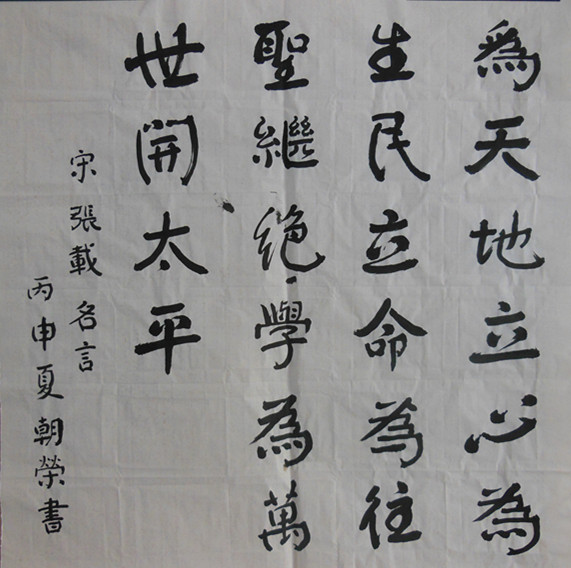 爲天地立心為
生民立命為往
聖繼絕學為萬
世開太平
宋張載名言
丙申夏朝榮書